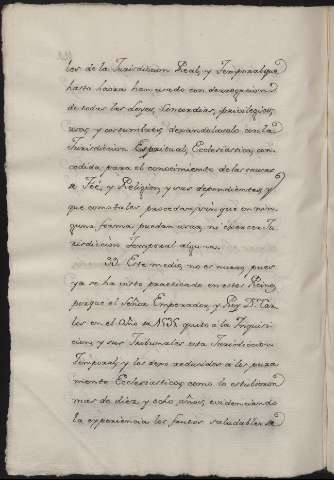 les de la Jurisdicion Real, y Temporal que
hasta haora han usado con derrogacion
de todas las Leyes, Concordias, privilegios,
usos, y costumbres, dexandolas solo con la
Jurisdicion Espiritual, Ecclesiastica, con-
cedida para el conocimiento de las causas
de Feé, y Religion, y sus dependientes, y
que como tales procedan, sin que en nin-
guna forma puedan usar, ni exercer Ju-
risdicion Temporal alguna.
33. Este medio, no es nuevo, pues
ya se ha visto practicado en este Reino,
porque el Señor Emperador, y Rey Dn. Car-
los en el Año de 1535 quitò a la Inquisi-
cion, y sus Tribunales esta Jurisdicion
Temporal, y los dexo reducidos à los pura
mente Ecclesiasticos, como lo estubieron
mas de diez, y ocho, años, evidenciando
la experiencia los frutos saludables de